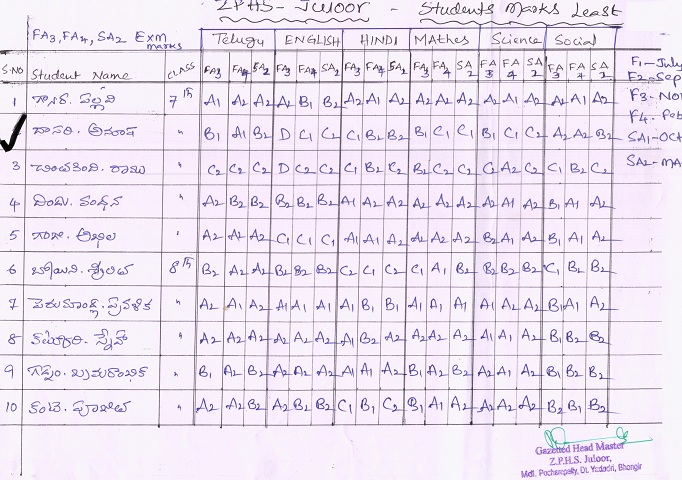 ZPHS - Juloor - Students Marks Least
FA3, FA4, SA2 Exm marks
Telugu ENGLISH HINDI MAthes Science Social
S.NO Student Name CLASS FA3 FA4 SA2 FA3 FA4 SA2 FA3 FA4 SA2 FA3 FA4 SA2 FA3 FA4 SA2 FA3 FA4 SA2
F1 - July
F2 - Sep
F3 - Nov
F4 - Feb
SA1 - Oct
SA2 - MA
1 7th A1 A2 A2 A2 B1 B2 A2 A1 A2 A2 A2 A2 A2 A1 A2 A2 A1 A2
దాసరి. అనూష " B1 A1 B2 D C1 C2 C1 B2 B2 B1 C1 C1 B1 C1 C2 A2 A2 B2
3 " C2 C2 C2 D C2 C2 C1 B2 C2 B2 C2 C2 C2 A2 C2 C1 B2 C2
4 A2 B2 B2 B2 B2 B2 A1 A2 A2 A2 A2 A2 A2 A1 A2 B1 A1 A2
5 గంజి. అఖిల A2 A2 A2 C1 C1 C1 A1 A1 A2 A2 A2 A2 B2 A1 A2 B1 A1 A2
6 8th B2 A2 A2 B2 B2 B2 C2 C1 C2 C1 A1 B2 B2 B2 B2 C1 B2 B2
7 " A2 A1 A2 A1 A1 A1 A1 B1 B1 A1 A1 A1 A1 A2 A2 B1 A1 A2
8 " A2 A2 A2 A2 A2 A2 A1 B2 A2 A2 A2 A2 A1 A1 A2 B2 B2 B2
9 " B1 A2 B2 A2 A2 A2 A1 A1 A2 B1 A2 B2 A2 A2 A2 B1 B2 B2
10 " A2 A2 B2 A2 B2 B2 C1 B1 C2 B1 A1 A2 A2 A2 A2 B2 B1 B2
Gazetted Head Master
Z.P.H.S. Juloor,
Mdl. Pochampally, Dt. Yadadri, Bhongir